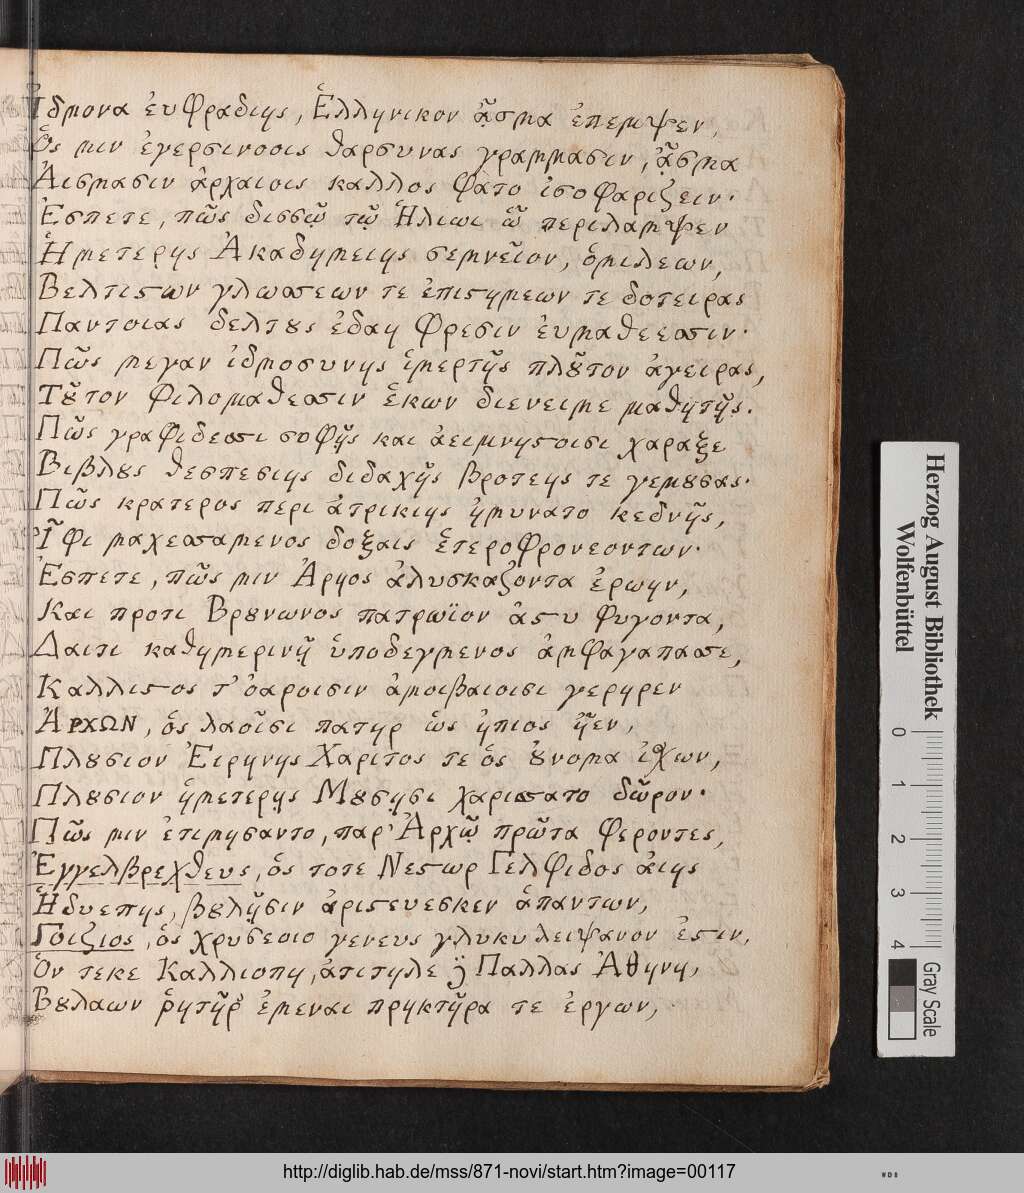 Ἴδμονα ἐυφραδιης, Ἑλληνικον ᾆσμα ἐπεμψεν,
Ὅς μιν ἐγερσινοοις θαρσυνας γραμμασιν, ᾆσμα
Ἀισμασιν ἀρχαιοις καλλος φατο ἰσοφαριζειν·
Ἐσπετε, πῶς δισσῷ τῷ Ἡλιωι ὥ περιλαμψεν
Ἡμετερης Ἀκαδημειης σεμνεῖον, ὁμιλεων,
Βελτιϛων γλωσσεων τε ἐπιϛημεων τε δοτειρας
Παντοιας δελτȣς ἐδαη φρεσιν ἐυμαθεεσσιν·
Πῶς μεγαν ἰδμοσυνης ἱμερτῆς πλȣ͂τον ἀγειρας,
Τȣ͂τον φιλομαθεσσιν ἑκων διενειμε μαθηταῖς.
Πῶς γραφιδεσσι σοφῇς και ἀειμνηϛοισι χαραξε
Βιβλȣς θεσπεσιης διδαχῆς βροτεης τε γεμȣσας·
Πῶς κρατερος περι ἀτρικιης ἠμυνατο κεδνῆς,
Ἶφι μαχεσσαμενος δοξαις ἑτεροφρονεοντων·
Ἐσπετε, πῶς μιν Ἀρηος ἀλυσκαζοντα ἐρωην,
Και προτι Βρȣνωνος πατρωϊον ἀϛυ φυγοντα,
Δαιτι καθημερινῇ ὑποδεγμενος ἀμφαγαπασσε,
Καλλιϛος τ' ὀαροισιν ἀμοιβαιοισι γερηρεν
ἈΡΧΩΝ, ὁς λαοῖσι πατηρ ὡς ἠπιος ᾖεν,
Πλȣσιον Ἐιρηνης Χαριτος τε ὁς ȣ̓νομα ἰχων,
Πλȣσιον ἡμετερῃς Μȣσῃσι χαρισσατο δῶρον·
Πῶς μιν ἐτιμησαντο, παρ' Ἀρχῷ πρῶτα φεροντες,
Ἐγγελβρεχθευς, ὁς τοτε Νεϛωρ Γελφιδος ἀιης
Ἡδυεπης, βȣλῇσιν ἀριϛευεσκεν ἁπαντων,
Γοιζιος, ὁς χρυσεοιο γενευς γλυκυ λειψανον ἐϛιν,
Ὁν τεκε Καλλιοπη, ἀτιτηλε ϗ Παλλας Ἀθηνη,
Βȣλαων ῥητῆρ' ἐμεναι πρηκτῆρα τε ἐργων,
Herzog August Bibliothek
Wolfenbüttel
0 1 2 3 4
Gray Scale
http://diglib.hab.de/mss/871-novi/start.htm?image=00117
WDB